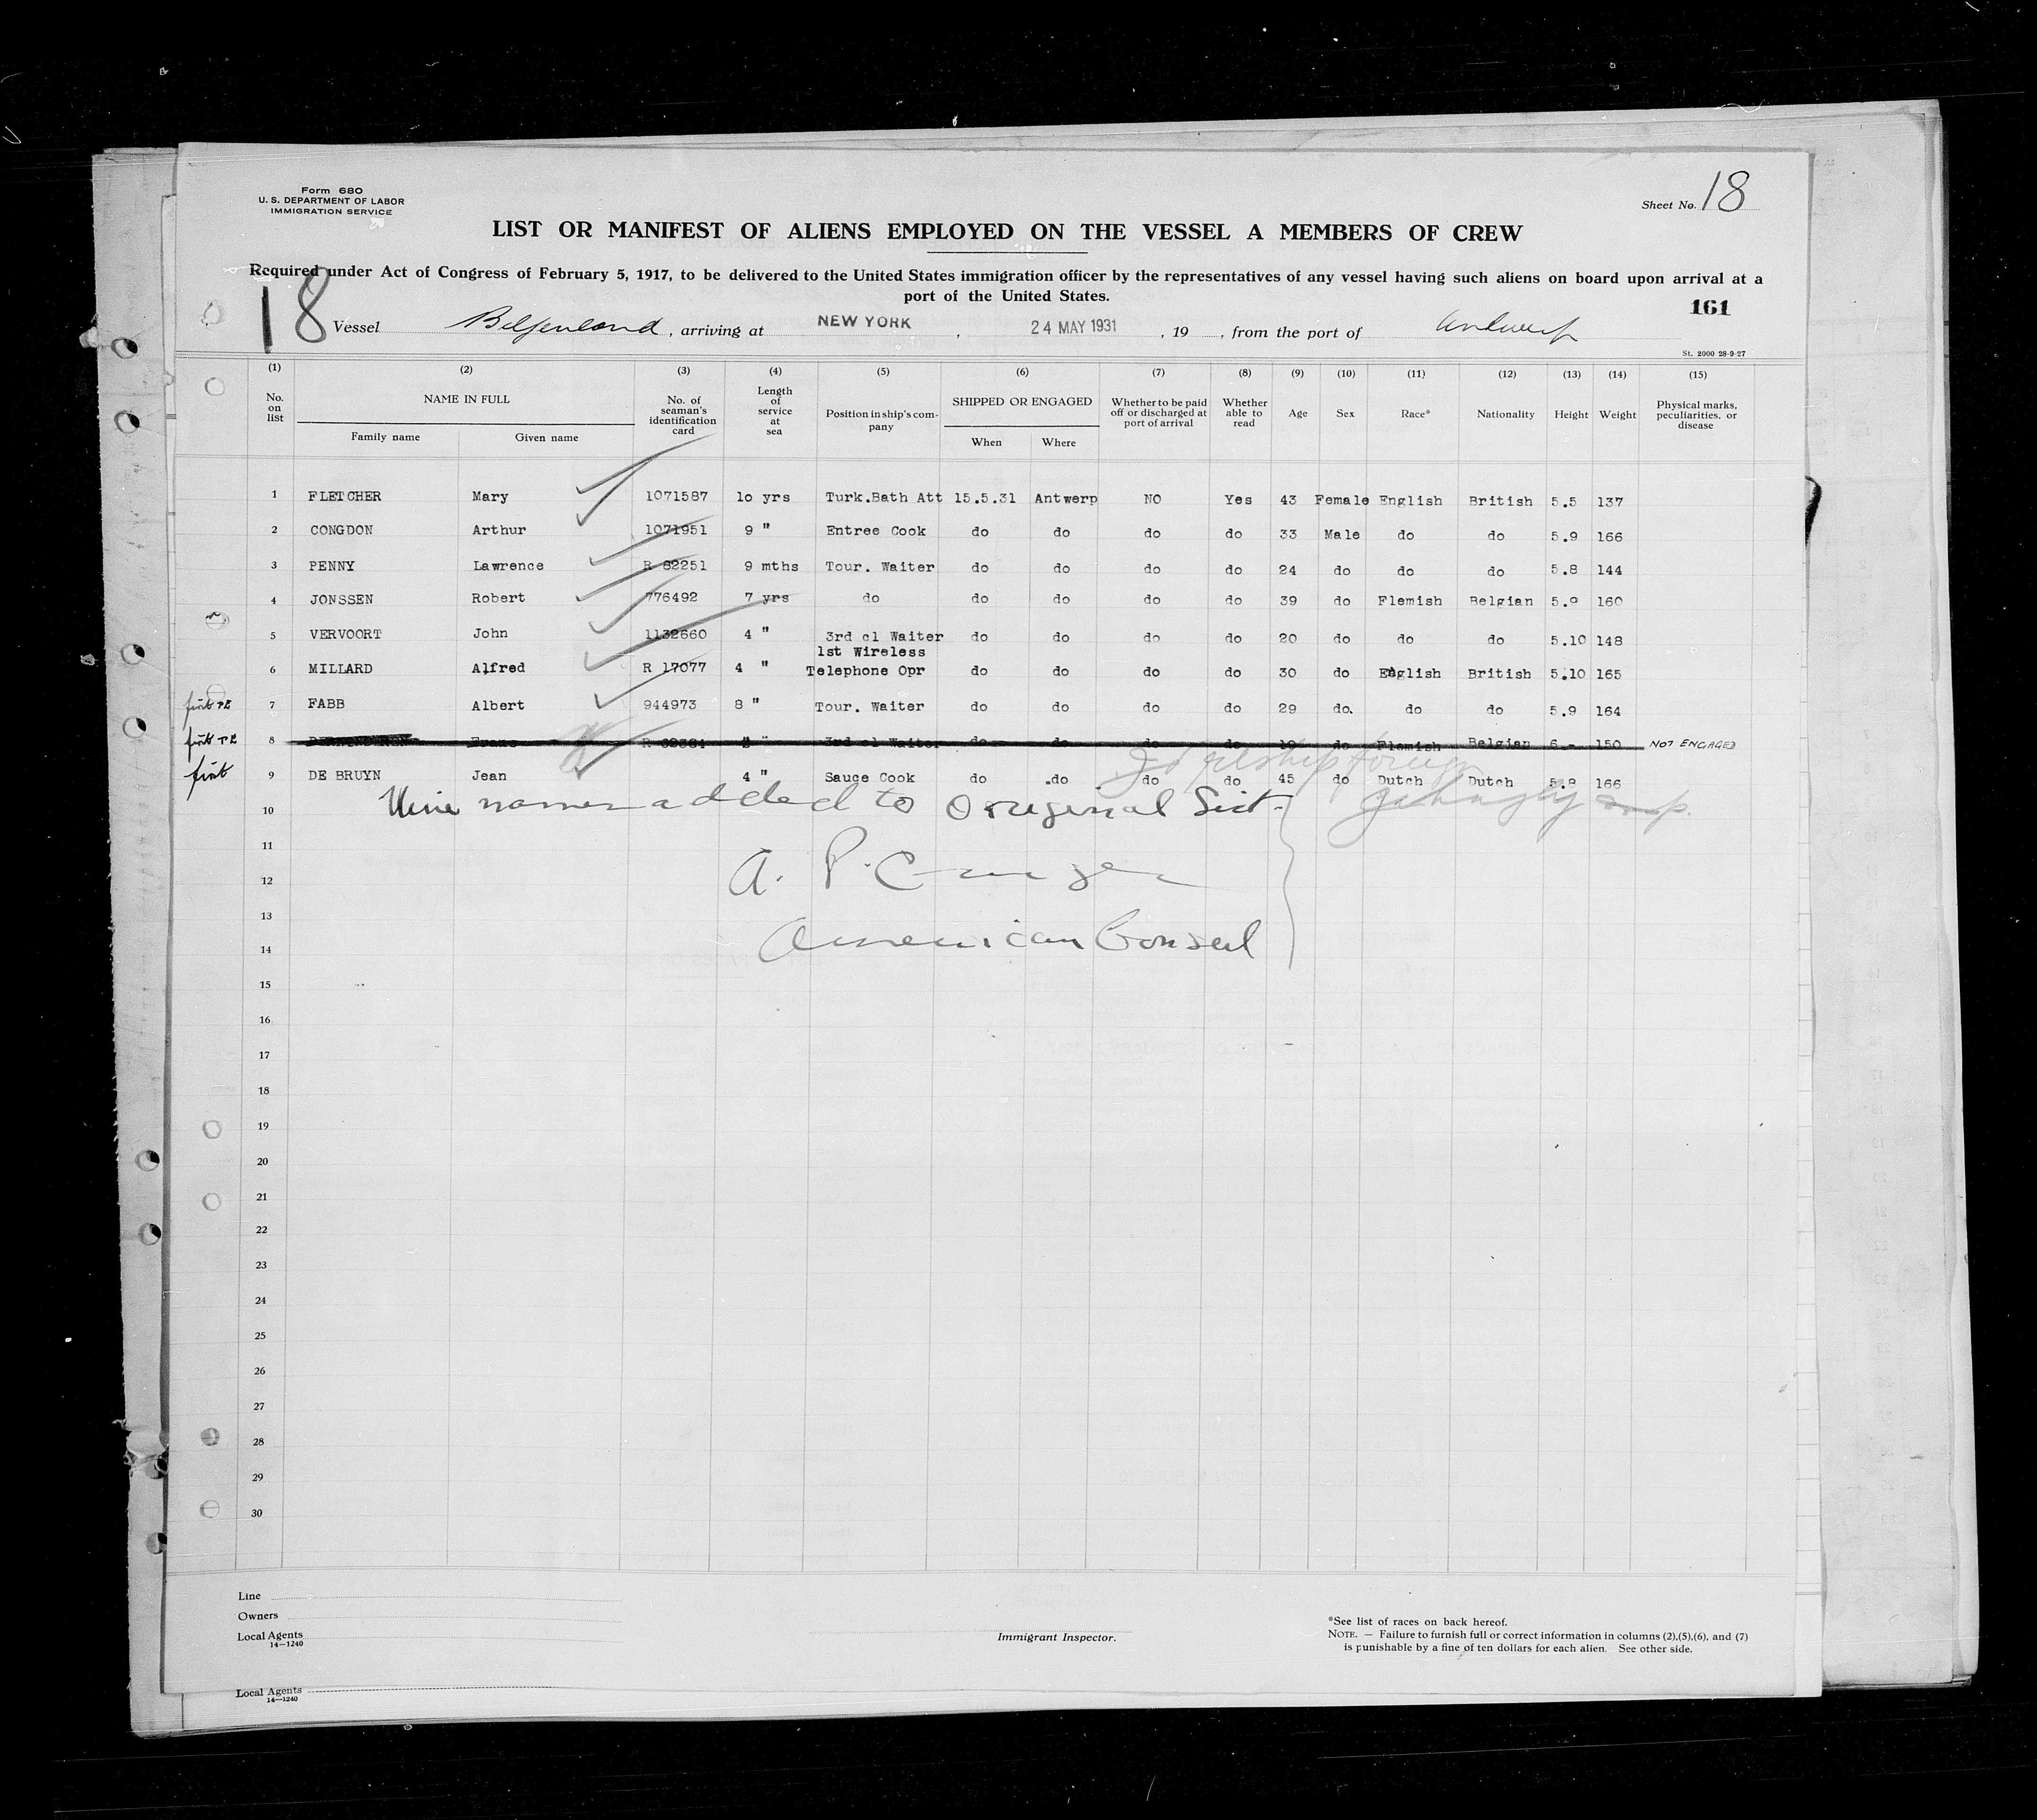 Form 680
U. S. DEPARTMENT OF LABOR
IMMIGRATION SERVICE
Sheet No. 18
LIST OR MANIFEST OF ALIENS EMPLOYED ON THE VESSEL A MEMBERS OF CREW
Required under Act of Congress of February 5, 1917, to be delivered to the United States immigration officer by the representatives of any vessel having such aliens on board upon arrival at a
port of the United States.
161
18 Vessel Belgenland, arriving at NEW YORK, 24 MAY 1931, 19 , from the port of Antwerp
St. 2000 28-9-27
(1) (2) (3) (4) (5) (6) (7) (8) (9) (10) (11) (12) (13) (14) (15)
No. on list NAME IN FULL Family name Given name No. of seaman's identification card Length of service at sea Position in ship's company SHIPPED OR ENGAGED When Where Whether to be paid off or discharged at port of arrival Whether able to read Age Sex Race* Nationality Height Weight Physical marks, peculiarities, or disease
1 FLETCHER Mary 1071587 10 yrs Turk.Bath Att 15.5.31 Antwerp NO Yes 43 Female English British 5.5 137
2 CONGDON Arthur 1071951 9 " Entree Cook do do do do 33 Male do do 5.9 166
3 PENNY Lawrence R 82251 9 mths Tour. Waiter do do do do 24 do do do 5.8 144
4 JONSSEN Robert 776492 7 yrs do do do do do 39 do Flemish Belgian 5.9 160
5 VERVOORT John 1132660 4 " 3rd cl Waiter do do do do 20 do do do 5.10 148
6 MILLARD Alfred R 17077 4 " 1st Wireless Telephone Opr do do do do 30 do English British 5.10 165
7 FABB Albert 944973 8 " Tour. Waiter do do do do 29 do. do do 5.9 164
8 3rd cl Waiter do do do do 19 do Flemish Belgian 6.- 150 NOT ENGAGED
first 9 DE BRUYN Jean 4 " Sauce Cook do .do do do 45 do Dutch Dutch 5.8 166
10
Nine names added to Original List.
11
12
A. P.
13
14
American Consul
15
16
17
18
19
20
21
22
23
24
25
26
27
28
29
30
Line
Owners
Local Agents
14—1240
Immigrant Inspector.
*See list of races on back hereof.
NOTE. — Failure to furnish full or correct information in columns (2),(5),(6), and (7)
is punishable by a fine of ten dollars for each alien. See other side.
Local Agents
14—1240